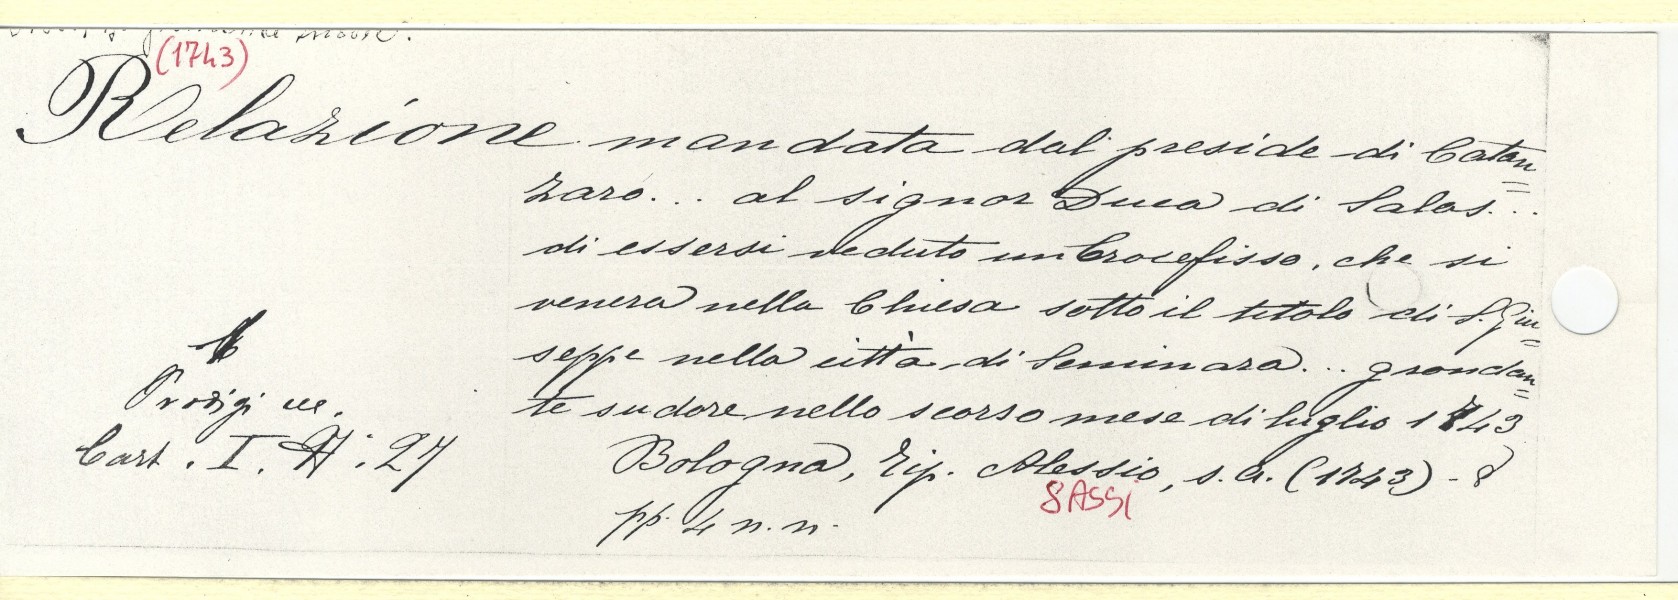 (1743)
Relazione mandata dal preside di Catan=
zaro... al signor Duca di Salas...
di essersi veduto un Crocefisso, che si
venera nella Chiesa sotto il titolo di S. Giu=
seppe nella città di Seminara... grondan=
te sudore nello scorso mese di luglio 1743
Bologna, Tip. Alessio, s. a. (1743) - 8
SASSI
pp. 4 n. n.
Prodigi
Cart. I. H: 27